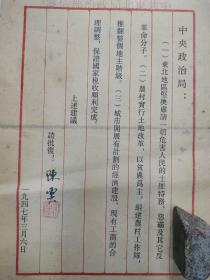 中央政治局：
（一）東北地區堅决處讀一切危害人民的土匪特務、惡霸及其它反
革命分子。（二）農村實行土地改革，以貧農爲主，組建農村工作隊，
推翻整個地主階級。（三）城市開展有計劃的經濟建設，現有工商的合
理調整，保證國家稅收順利完成。
上述建議
請批復！
陳雲
一九四七年三月六日